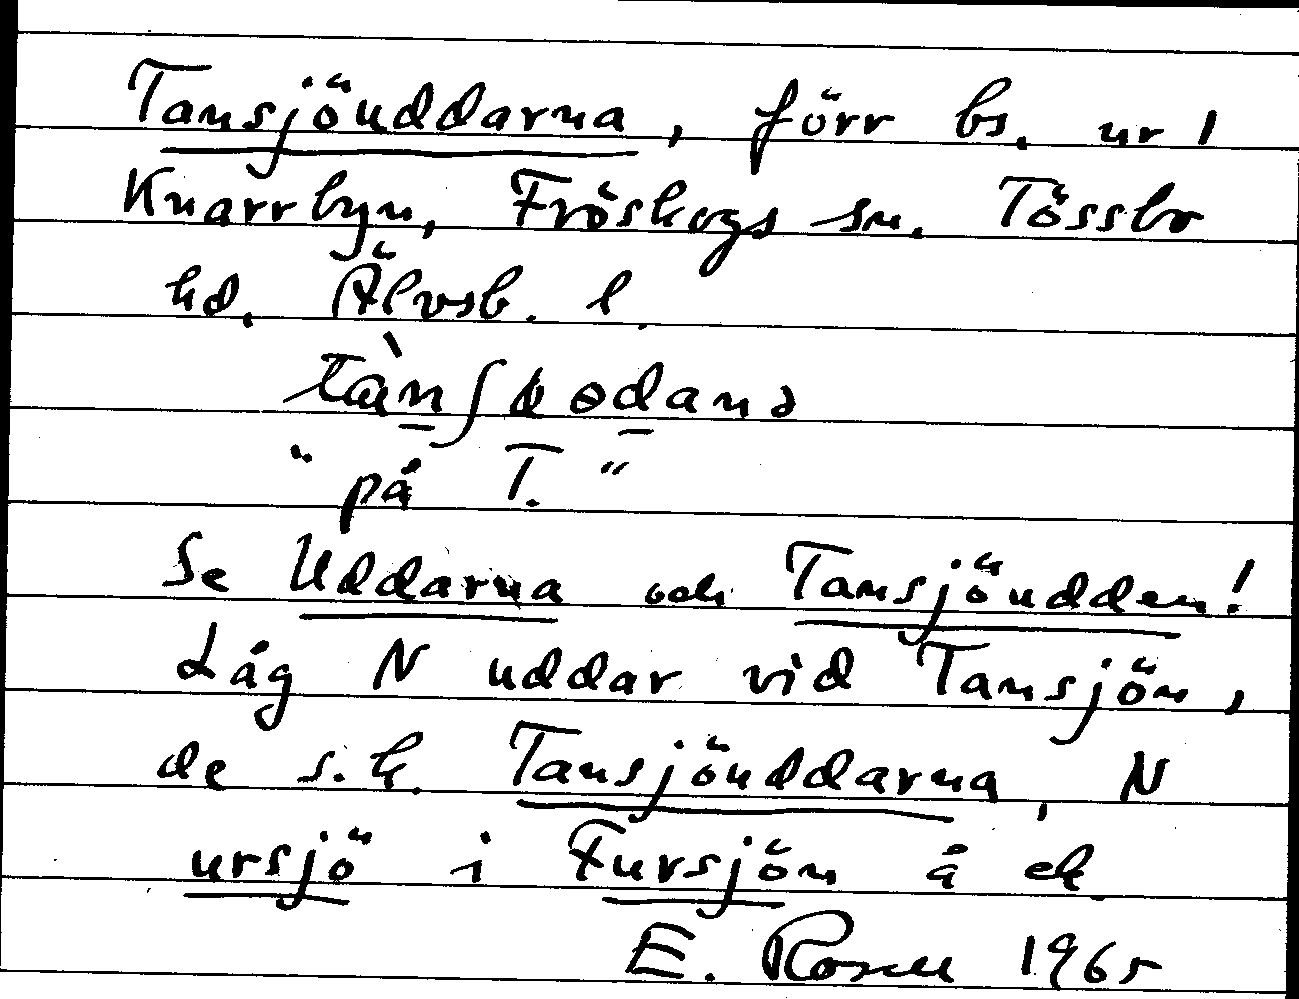 Tansjöuddarna, förr bs. nr 1
Knarrbyn, Fröskogs sn. Tössbo
hd. Älvsb. l.
"på T."
Se Uddarna och Tansjöudden!
Låg N uddar vid Tansjön,
de s.k. Tansjöuddarna, N
ursjö i Fursjön å ek.
E. Rosell 1965